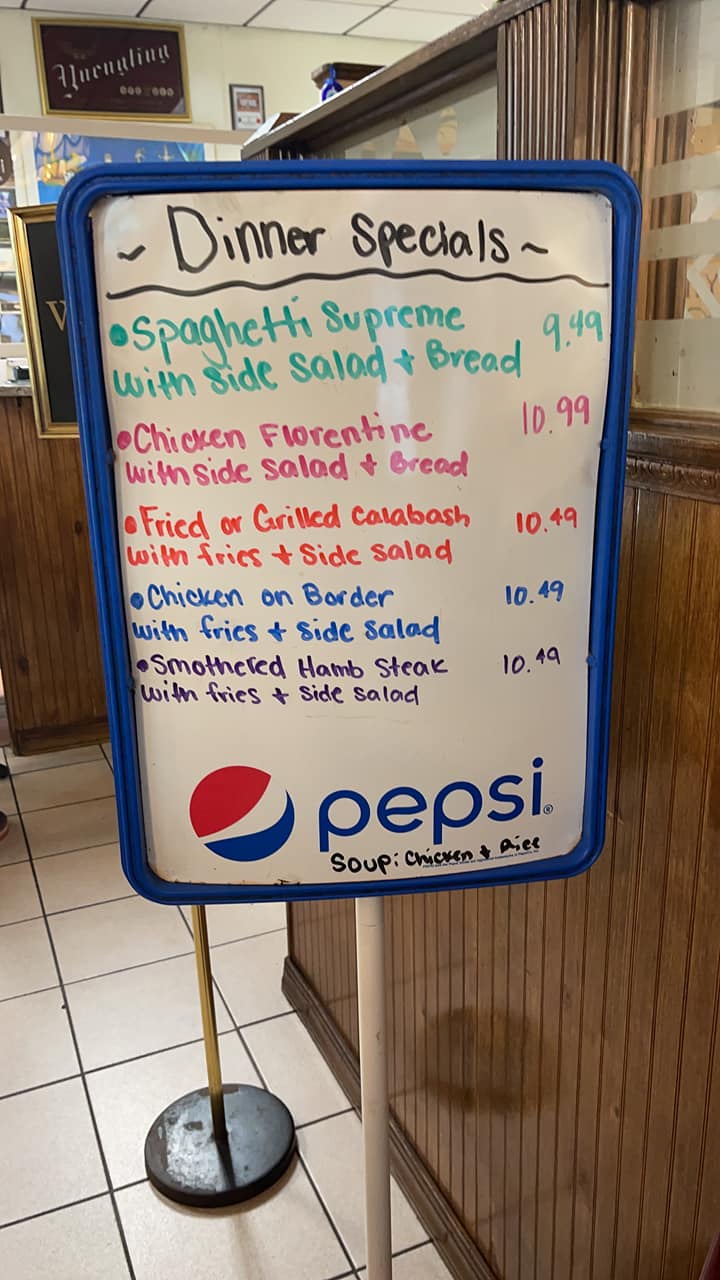 Yuengling
~ Dinner Specials ~
• Spaghetti Supreme 9.49
with side salad + Bread
• Chicken Florentine 10.99
with side salad + Bread
• Fried or Grilled Calabash 10.49
with fries + side salad
• Chicken on Border 10.49
with fries + side salad
• Smothered Hamb Steak 10.49
with fries + side salad
pepsi®
Soup: Chicken & Rice